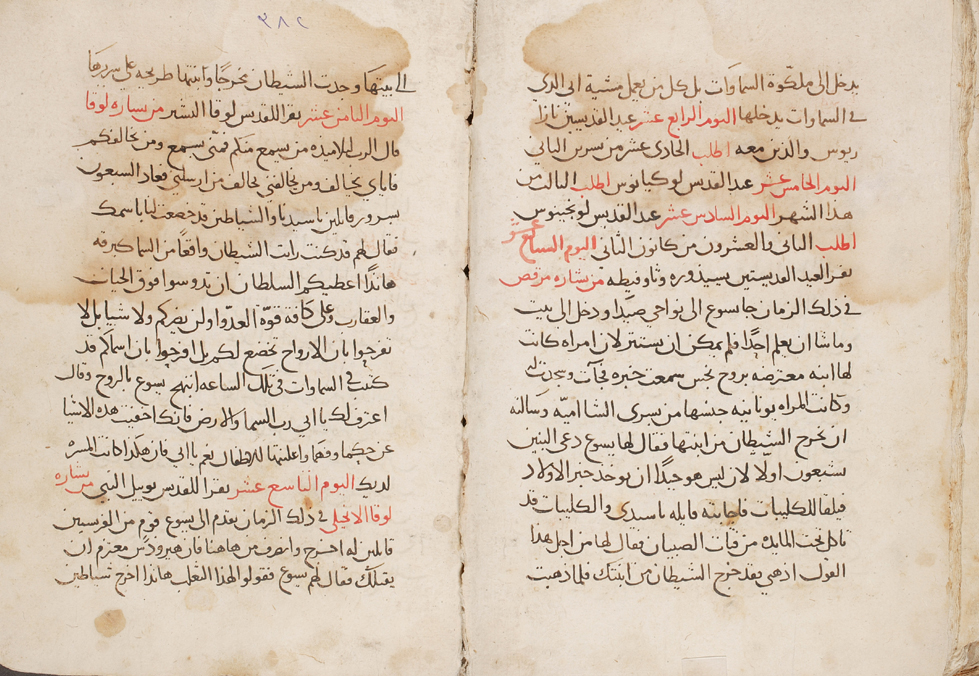 يدخل الى ملكوة السماوات بل كل من يعمل مشية ابي الدى
في السماوات يدخلها اليوم الرابع عشر عيد القديسين نازا
ريوس والدين معه اطلب الحادى عشر من سرين الثاني
اليوم الخامس عشر عيد القديس لوكيانوس اطلب الثالث من
هدا الشهر اليوم السادس عشر عيد القديس لونجينوس
اطلب الثاني والعشرون من كانون الثاني اليوم السابع عشر
نقرا لعيد القديستين بسيدوره وثاوفيطه من بشاره مرقص
في دلك الزمان جا يسوع الى نواحي صيدا ودخل الى بيت
وما شا ان يعلم احدا فلم يمكن ان يستتر لان امراه كانت
لها ابنه معترضه بروح نجس سمعت خبره فجات وسجدت له
وكانت المراه يونانيه جنسها من سيرى الشاميه وسالته
ان يخرج الشيطان من ابنتها فقال لها يسوع دعى البنين
يشبعون اولا لان ليس هو جيدا ان يوخد خبز الاولاد
فيلقا للكليبات فاجابته قايله يا سيدى والكليبات قد
تاكل تحت المايده من فتات الصبيان فقال لها من اجل هدا
القول ادهبي فقد خرج الشيطان من ابنتك فلما دهبت
٣٨٢
الى بيتها وجدت الشيطان مخرجا وابنتها طريحه على سريرها
اليوم الثامن عشر يقرا للقديس لوقا البشير من بشاره لوقا
قال الرب لتلاميده من سمع منكم فمني يسمع ومن يخالفكم
فاياي يخالف ومن يخالفني يخالف من ارسلني فعاد السبعون
بسرور قايلين يا سيدنا والشياطين قد خضعت لنا باسمك
فقال لهم قد كنت رايت الشيطان واقعا من السما كبرقه
هاندا اعطيكم السلطان ان تدوسوا فوق الحيات
والعقارب وعلى كافة قوة العدوا ولن يضركم ولا شيا بل لا
تفرحوا بان الارواح تخضع لكم بل افرحوا بان اسماكم قد
كتبت في السماوات في تلك الساعه ابتهج يسوع بالروح وقال
اعترف لك يا ابي رب السما والارض فانك اخفيت هده الاشيا
عن حكما وفهما واعلنتها للاطفال نعم يا ابي فان هكدا كانت المسره
لديك اليوم التاسع عشر يقرا للقديس يوييل النبي من بشاره
لوقا الانجلي في دلك الزمان تقدم الى يسوع قوم من الفريسيين
قايلين له اخرج وانصرف من هاهنا فان هيرودس معتزم ان
يقتلك فقال لهم يسوع فقولوا لهدا الثعلب هاندا اخرج شياطين